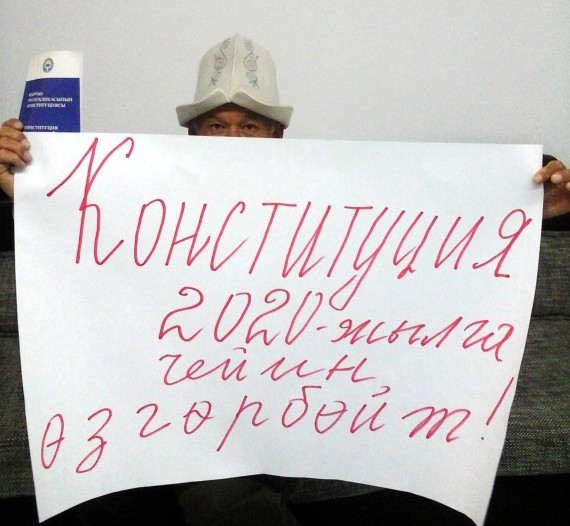 КЫРГЫЗ
РЕСПУБЛИКАСЫНЫН
КОНСТИТУЦИЯСЫ
КОНСТИТУЦИЯ
Конституция
2020-жылга
чейин
өзгөрбөйт!